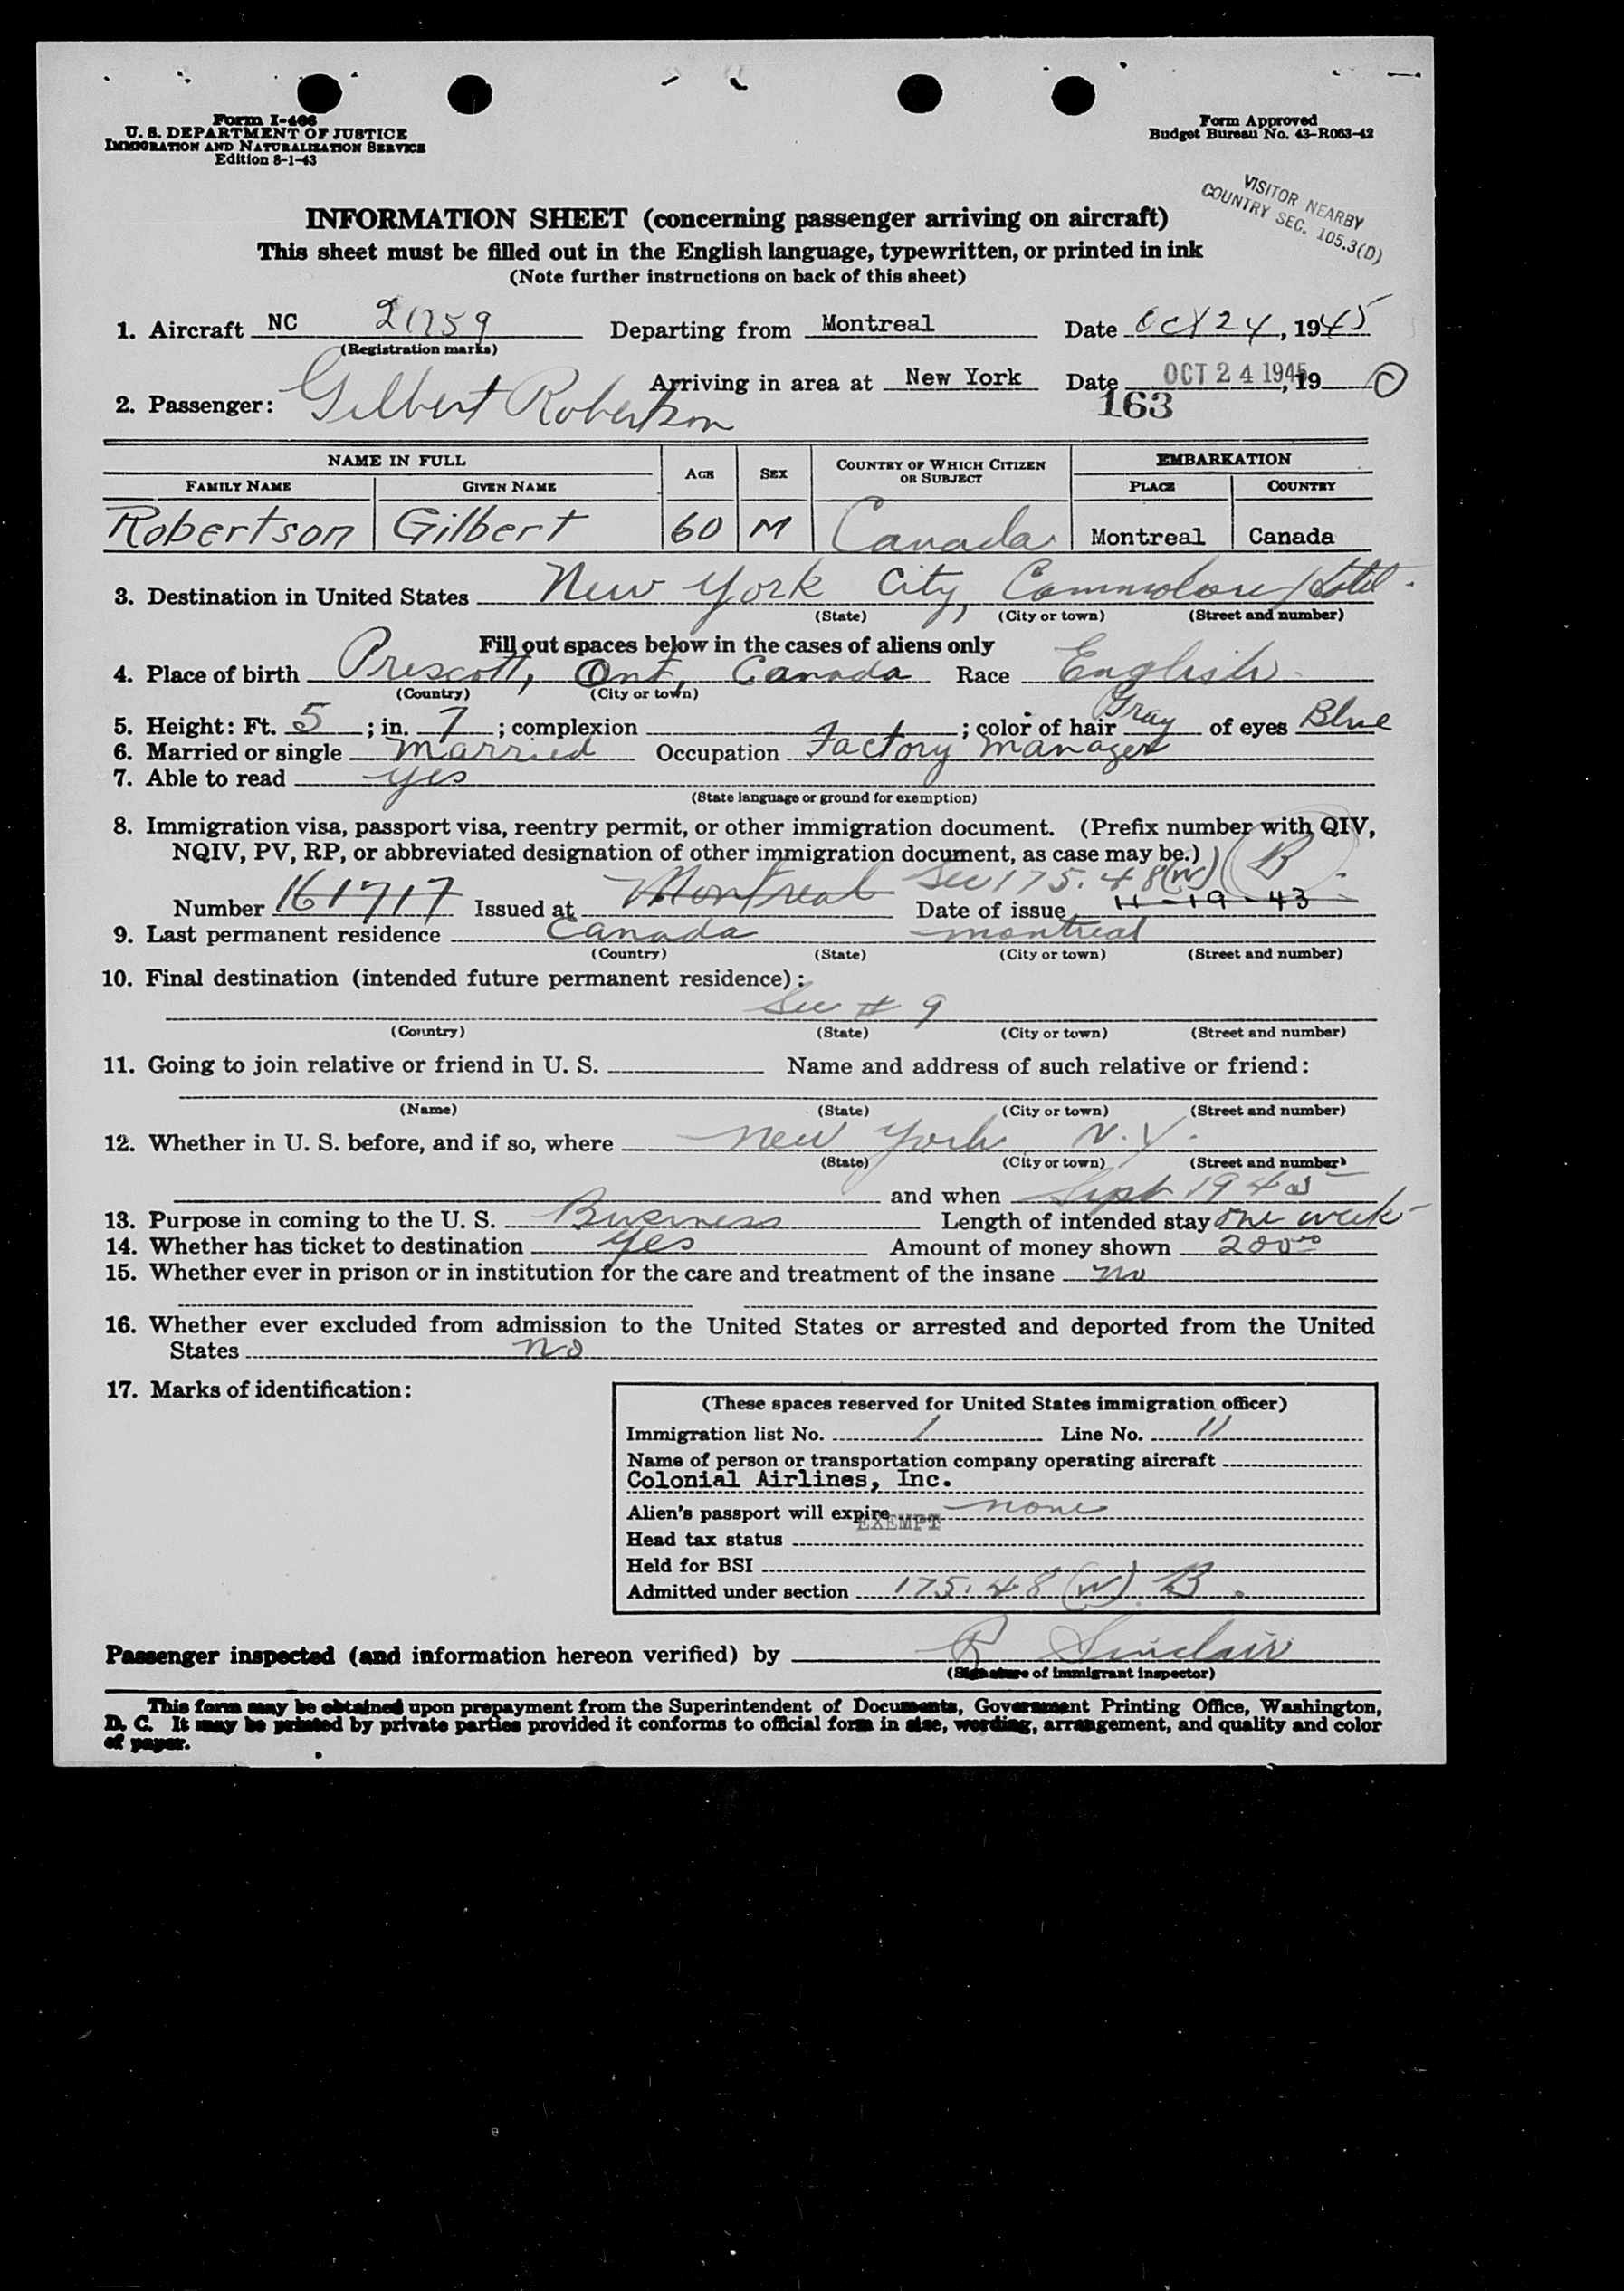 Form I-466
U. S. DEPARTMENT OF JUSTICE
IMMIGRATION AND NATURALIZATION SERVICE
Edition 8-1-43
Form Approved
Budget Bureau No. 43-R063-42
VISITOR NEARBY
COUNTRY SEC. 105.3(D)
INFORMATION SHEET (concerning passenger arriving on aircraft)
This sheet must be filled out in the English language, typewritten, or printed in ink
(Note further instructions on back of this sheet)
1. Aircraft NC Departing from Montreal Date Oct 24, 1945
(Registration marks)
Arriving in area at New York Date OCT 24 1945, 19
2. Passenger: Gilbert Robertson 163
NAME IN FULL AGE SEX COUNTRY OF WHICH CITIZEN OR SUBJECT EMBARKATION
FAMILY NAME GIVEN NAME PLACE COUNTRY
Robertson Gilbert 60 M Canada Montreal Canada
3. Destination in United States New York City, Commodore Hotel.
(State) (City or town) (Street and number)
Fill out spaces below in the cases of aliens only
4. Place of birth Prescott, Ont, Canada Race English
(Country) (City or town)
5. Height: Ft. 5; in. 7; complexion ; color of hair Gray of eyes Blue
6. Married or single Married Occupation Factory Manager
7. Able to read yes
(State language or ground for exemption)
8. Immigration visa, passport visa, reentry permit, or other immigration document. (Prefix number with QIV,
NQIV, PV, RP, or abbreviated designation of other immigration document, as case may be.) B
Sec 175.48(w)
Number 161717 Issued at Montreal Date of issue 11-19-43
9. Last permanent residence Canada Montreal
(Country) (State) (City or town) (Street and number)
10. Final destination (intended future permanent residence):
See # 9
(Country) (State) (City or town) (Street and number)
11. Going to join relative or friend in U. S. Name and address of such relative or friend:
(Name) (State) (City or town) (Street and number)
12. Whether in U. S. before, and if so, where New York N.Y.
(State) (City or town) (Street and number)
and when Sept 1945
13. Purpose in coming to the U. S. Business Length of intended stay one week
14. Whether has ticket to destination yes Amount of money shown 200.00
15. Whether ever in prison or in institution for the care and treatment of the insane no
16. Whether ever excluded from admission to the United States or arrested and deported from the United
States no
17. Marks of identification:
(These spaces reserved for United States immigration officer)
Immigration list No. 1 Line No. 11
Name of person or transportation company operating aircraft
Colonial Airlines, Inc.
Alien's passport will expire none
EXEMPT
Head tax status
Held for BSI
Admitted under section 175.48(w) B.
Passenger inspected (and information hereon verified) by R Sinclair
(Signature of immigrant inspector)
This form may be obtained upon prepayment from the Superintendent of Documents, Government Printing Office, Washington,
D. C. It may be printed by private parties provided it conforms to official form in size, wording, arrangement, and quality and color
of paper.